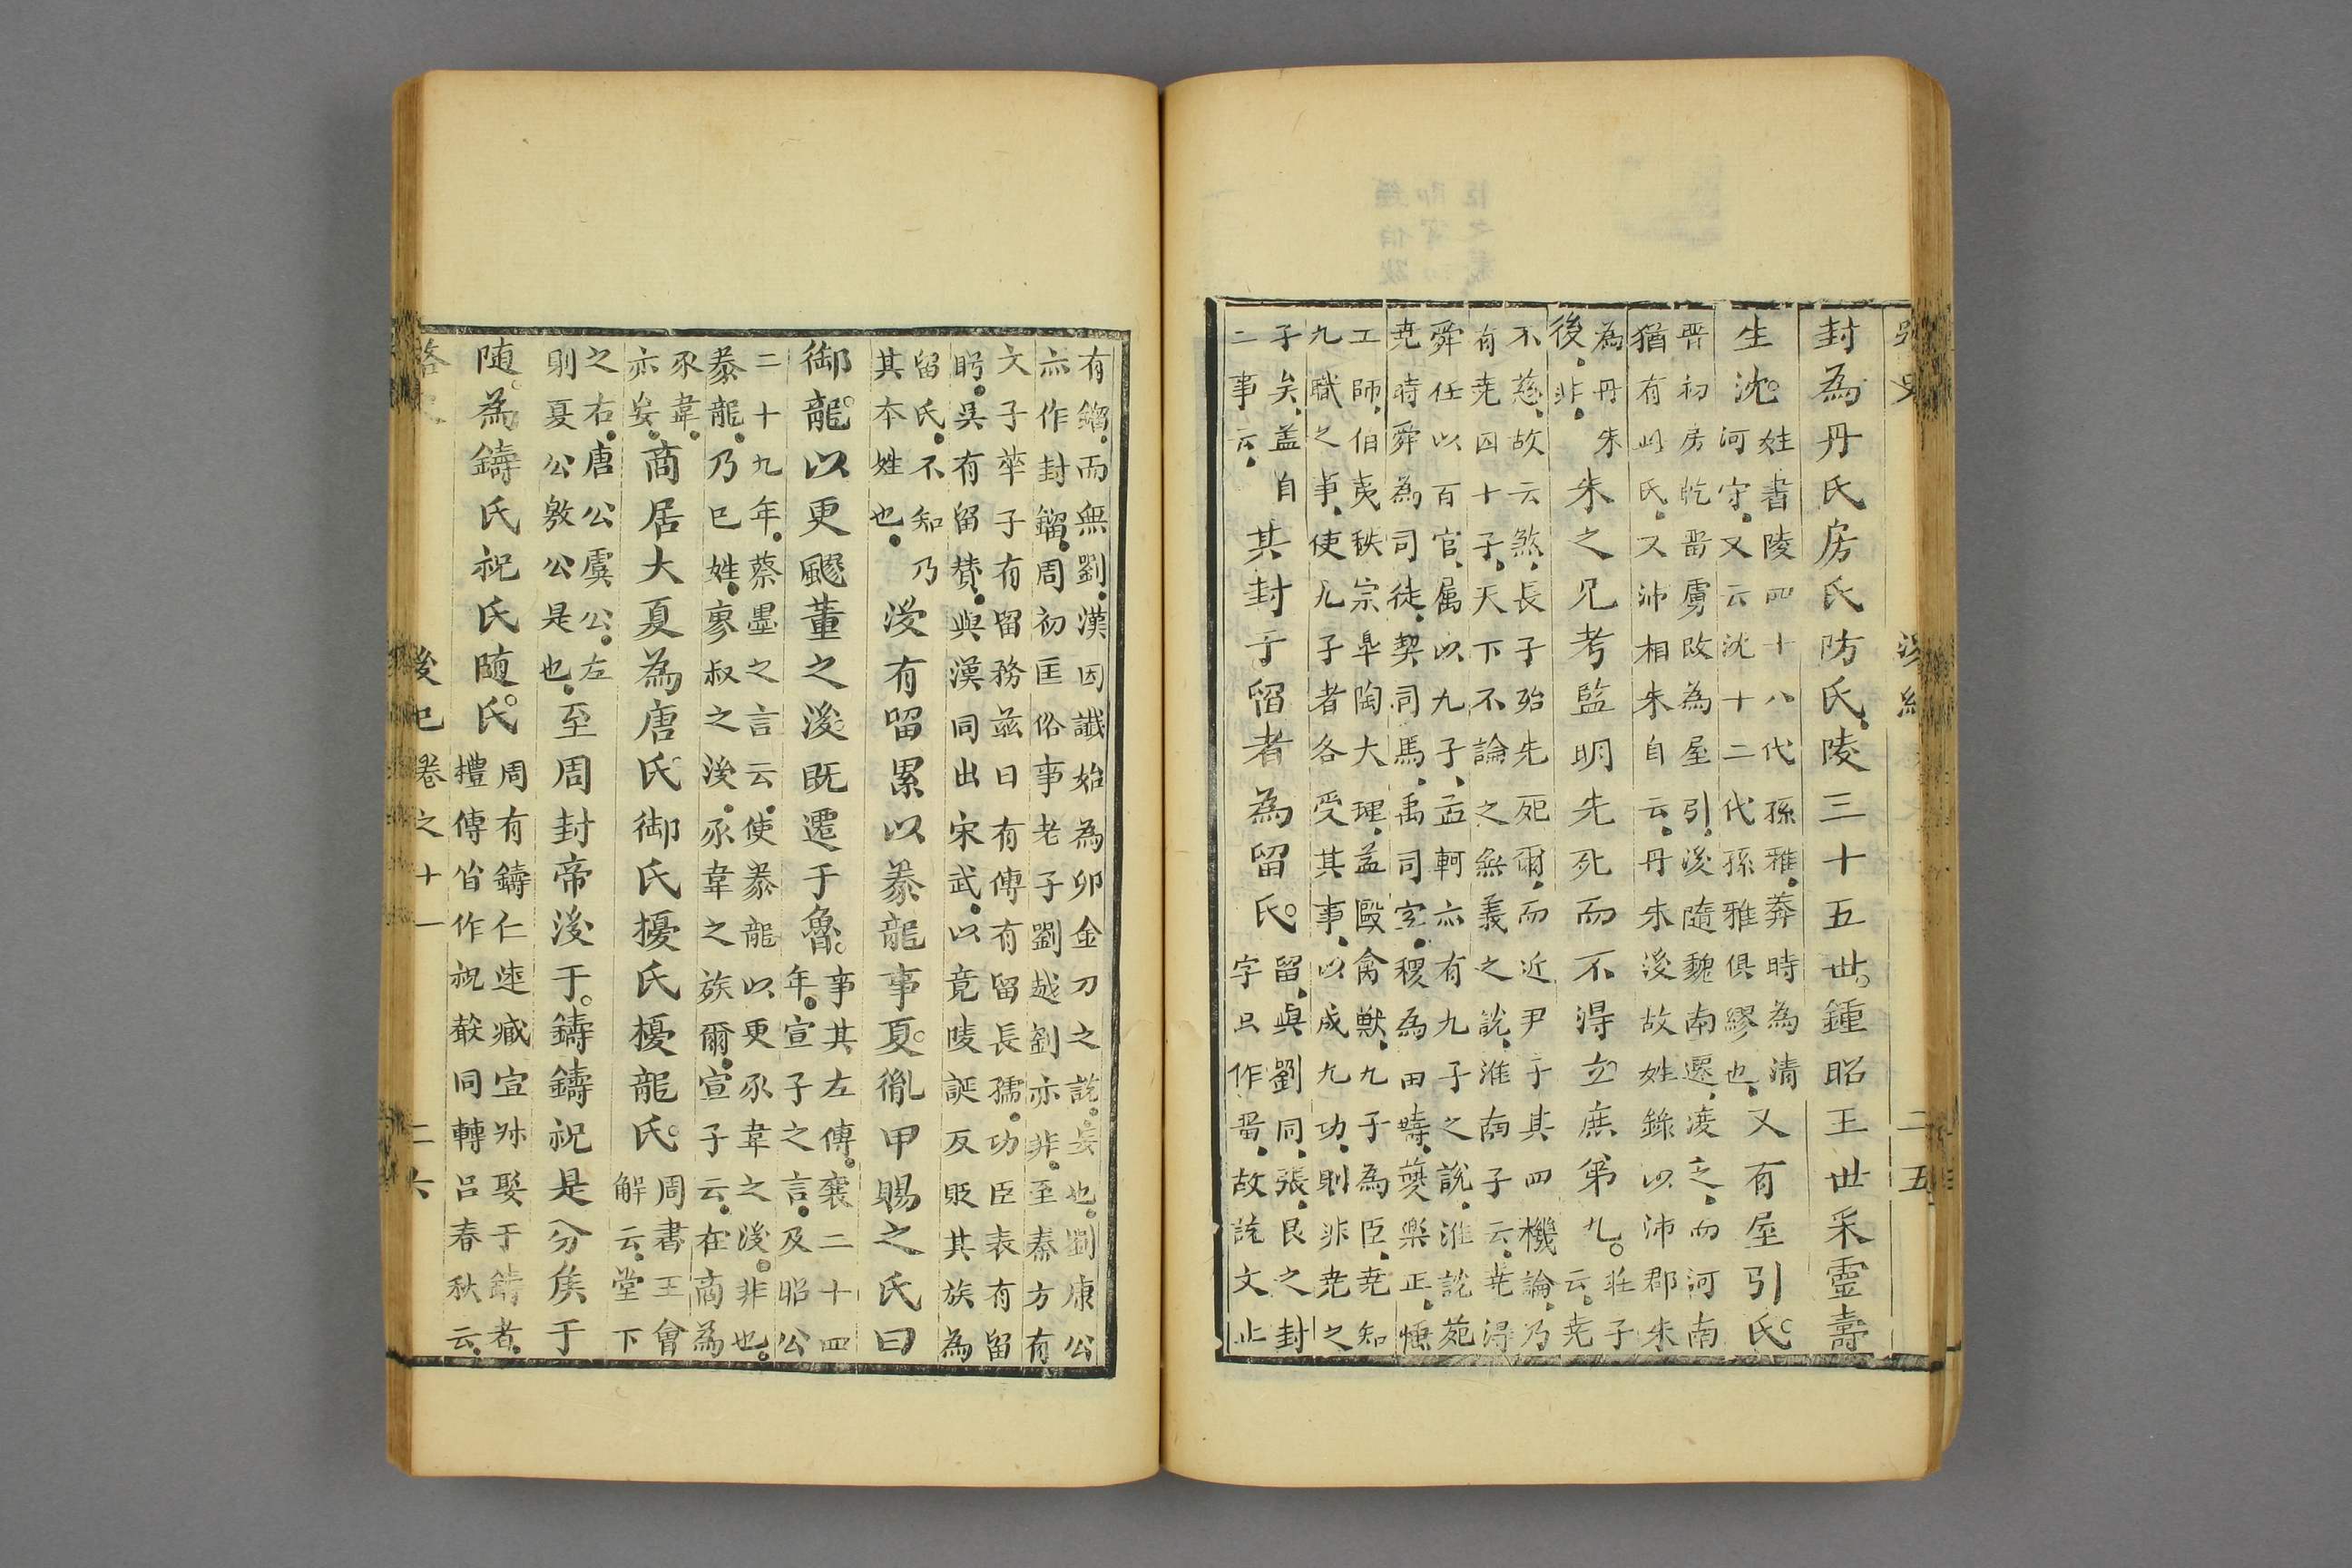 後紀
二五
封為丹氏房氏防氏陵三十五世鍾昭王世采靈壽
生沈姓書陵四十八代孫雅莽時為清
河守又云沈十二代孫雅俱繆也又有屋引氏
晋初房乾畱虜改為屋引後隨魏南遷復之而河南
猶有此氏又沛相朱自云丹朱後故姓錄以沛郡朱
為丹朱
後非朱之兄考監明先死而不得立庶弟九莊子
云堯
不慈故云煞長子殆先死爾而近尹于其四機論乃
有堯囚十子天下不論之無義之說淮南子云堯得
舜任以百官属以九子孟軻亦有九子之說淮說苑
堯時舜為司徒契司馬禹司空稷為田疇夔樂正倕
工師伯夷秩宗皐陶大理益毆禽獸九子為臣堯知
九職之事使九子者各受其事以成九功則非堯之
子矣盖自
二事云其封于留者為留氏留與劉同張良之封
字只作畱故說文止
有鎦而無劉漢因讖始為卯金刀之說妄也劉康公
亦作封鎦周初匡俗事老子劉越劉亦非至秦方有
文子華子有留務茲曰有傳有留長孺功臣表有留
盻吳有留賛與漢同出宋武以竟陵誕反貶其族為
留氏不知乃
其本姓也後有留累以豢龍事夏胤甲賜之氏曰
御龍以更豷董之後既遷于魯事其左傳襄二十四
年宣子之言及昭公
二十九年蔡墨之言云使豢龍以更豕韋之後非也
豢龍乃巳姓廖叔之後豕韋之族爾宣子云在商為
豕韋
亦妄商居大夏為唐氏御氏擾氏櫌龍氏周書王會
解云堂下
之右唐公虞公左
則夏公敫公是也至周封帝後于鑄鑄祝是分矦于
隨為鑄氏祝氏随氏周有鑄仁逹臧宣叔娶于鑄者
禮傳皆作祝敼同轉呂春秋云
後巳卷之十一
二六